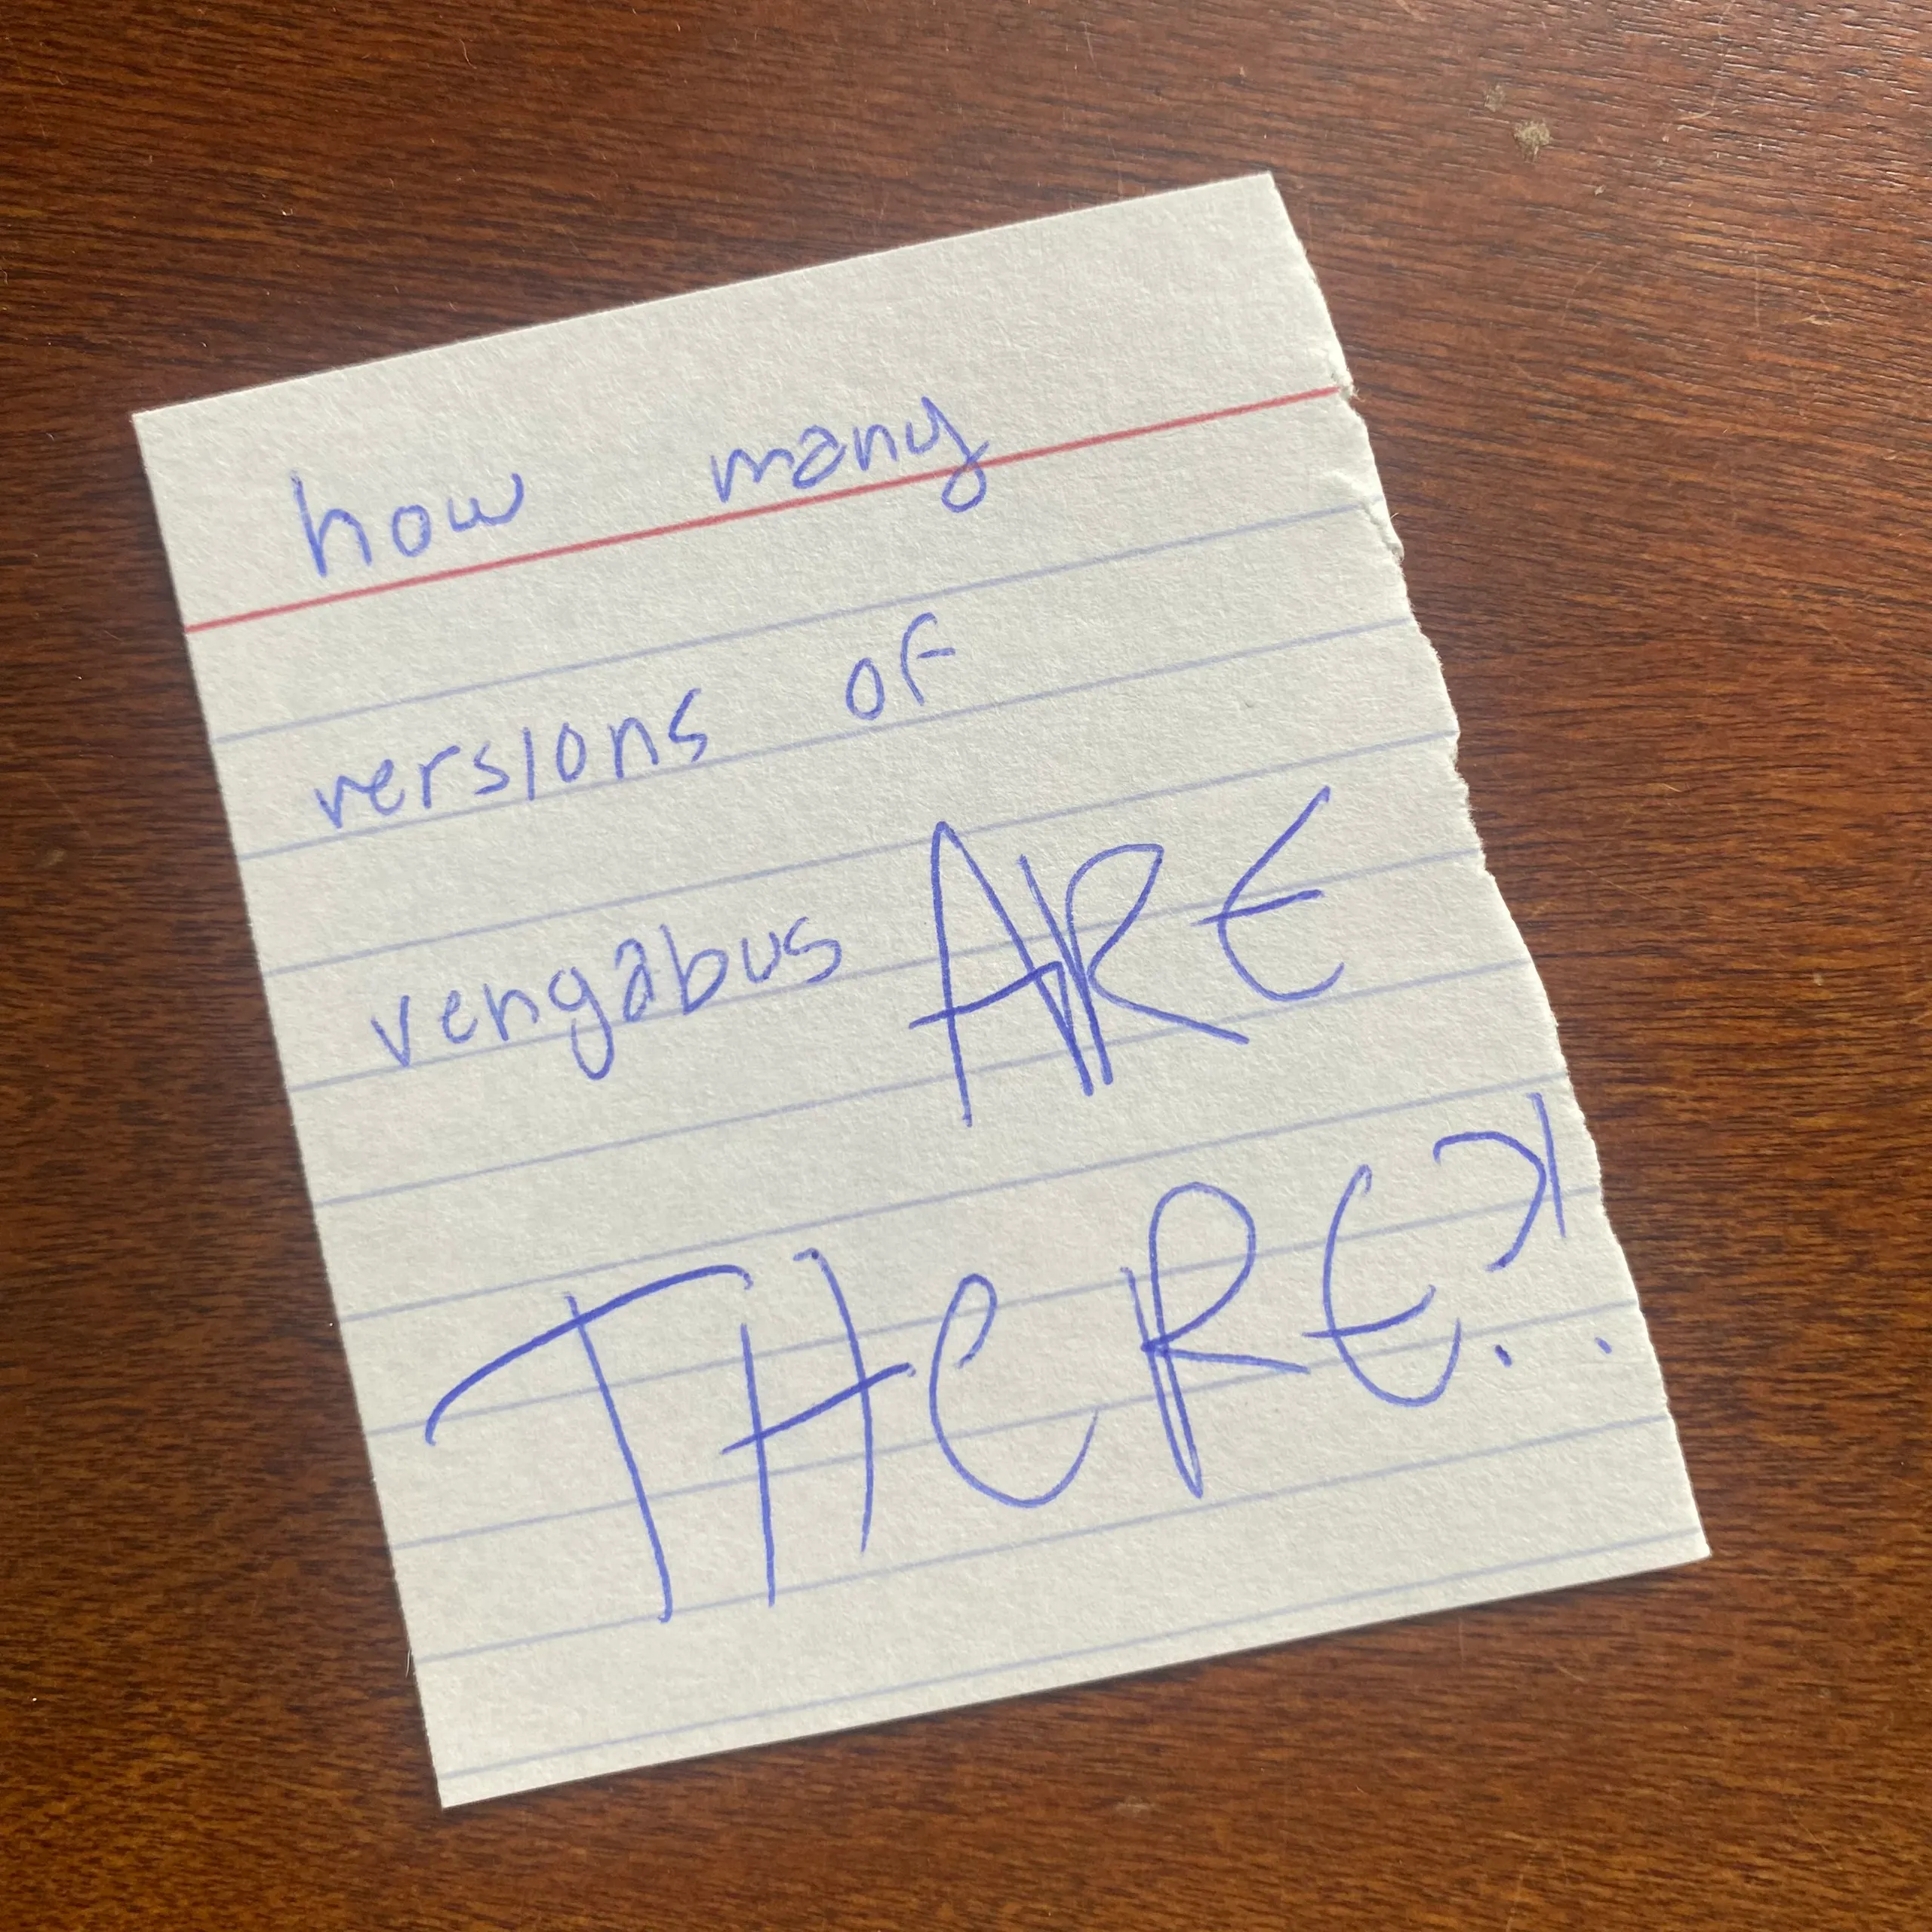 how many
versions of
vengabus ARE
THERE?!